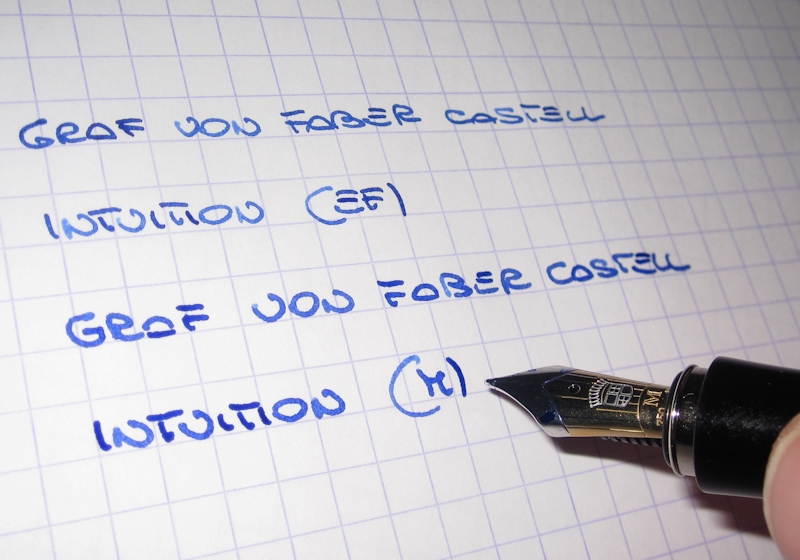 GRAF VON FABER CASTELL
INTUITION (EF)
GRAF VON FABER CASTELL
INTUITION (M)
M